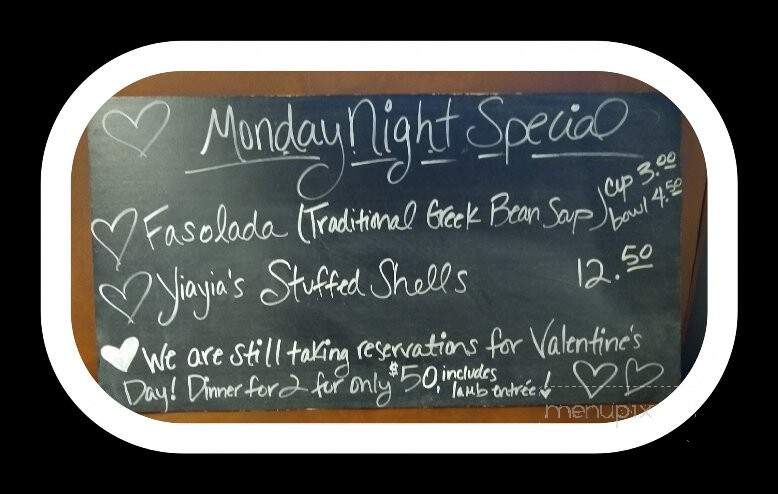 Monday Night Special
Fasolada (Traditional Greek Bean Soup) cup 3.00
bowl 4.50
Yiayia's Stuffed Shells 12.50
We are still taking reservations for Valentine's
Day! Dinner for 2 for only $50, includes
lamb entrée!
menupix